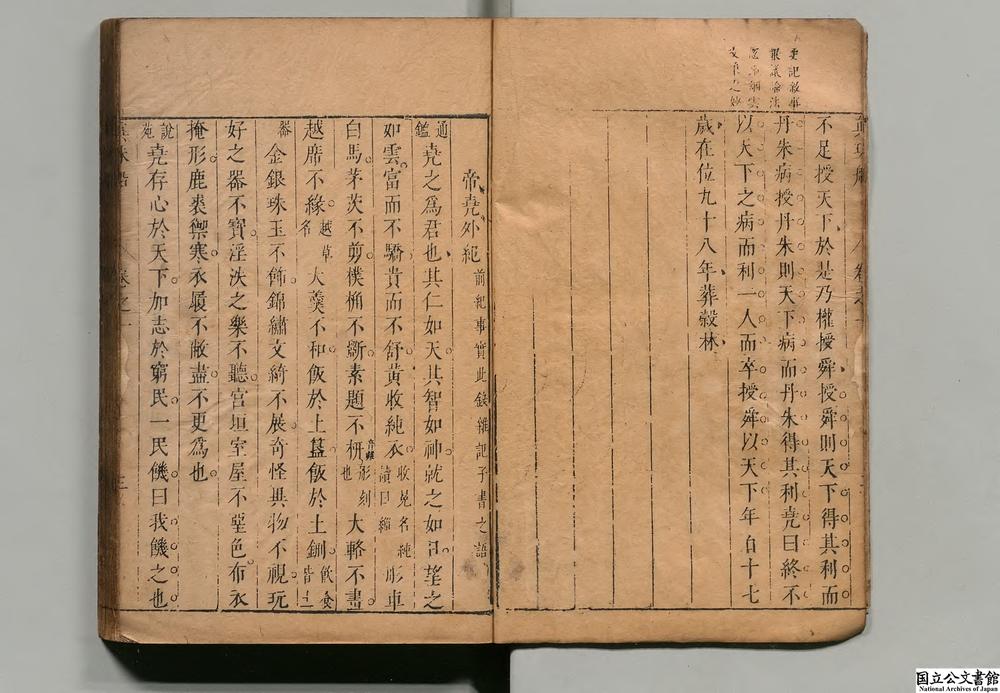 史記敘事
最議論法
之妙
不足授天下於是乃權授舜授舜則天下得其利而
丹朱病授丹朱則天下病而丹朱得其利堯曰終不
以天下之病而利一人而卒授舜以天下年百十七
歲在位九十八年葬穀林
帝堯外紀 前紀事實此錄雜記子書之語
通鑑 堯之為君也其仁如天其智如神就之如日望之
如雲富而不驕貴而不舒黃收純衣 收冕名 純讀曰緇 彤車
白馬茅茨不剪樸桷不斲素題不枅 形刻也 大輅不畫
越席不緣 越草名 大羹不和飯於土簋飯於土鉶 飲食皆土
器 金銀珠玉不飾錦繡文綺不展奇怪異物不視玩
好之器不寶淫泆之樂不聽宮垣室屋不堊色布衣
掩形鹿裘禦寒衣履不敝盡不更為也
說苑 堯存心於天下加志於窮民一民饑曰我饑之也
卷之一
三
国立公文書館
National Archives of Japan